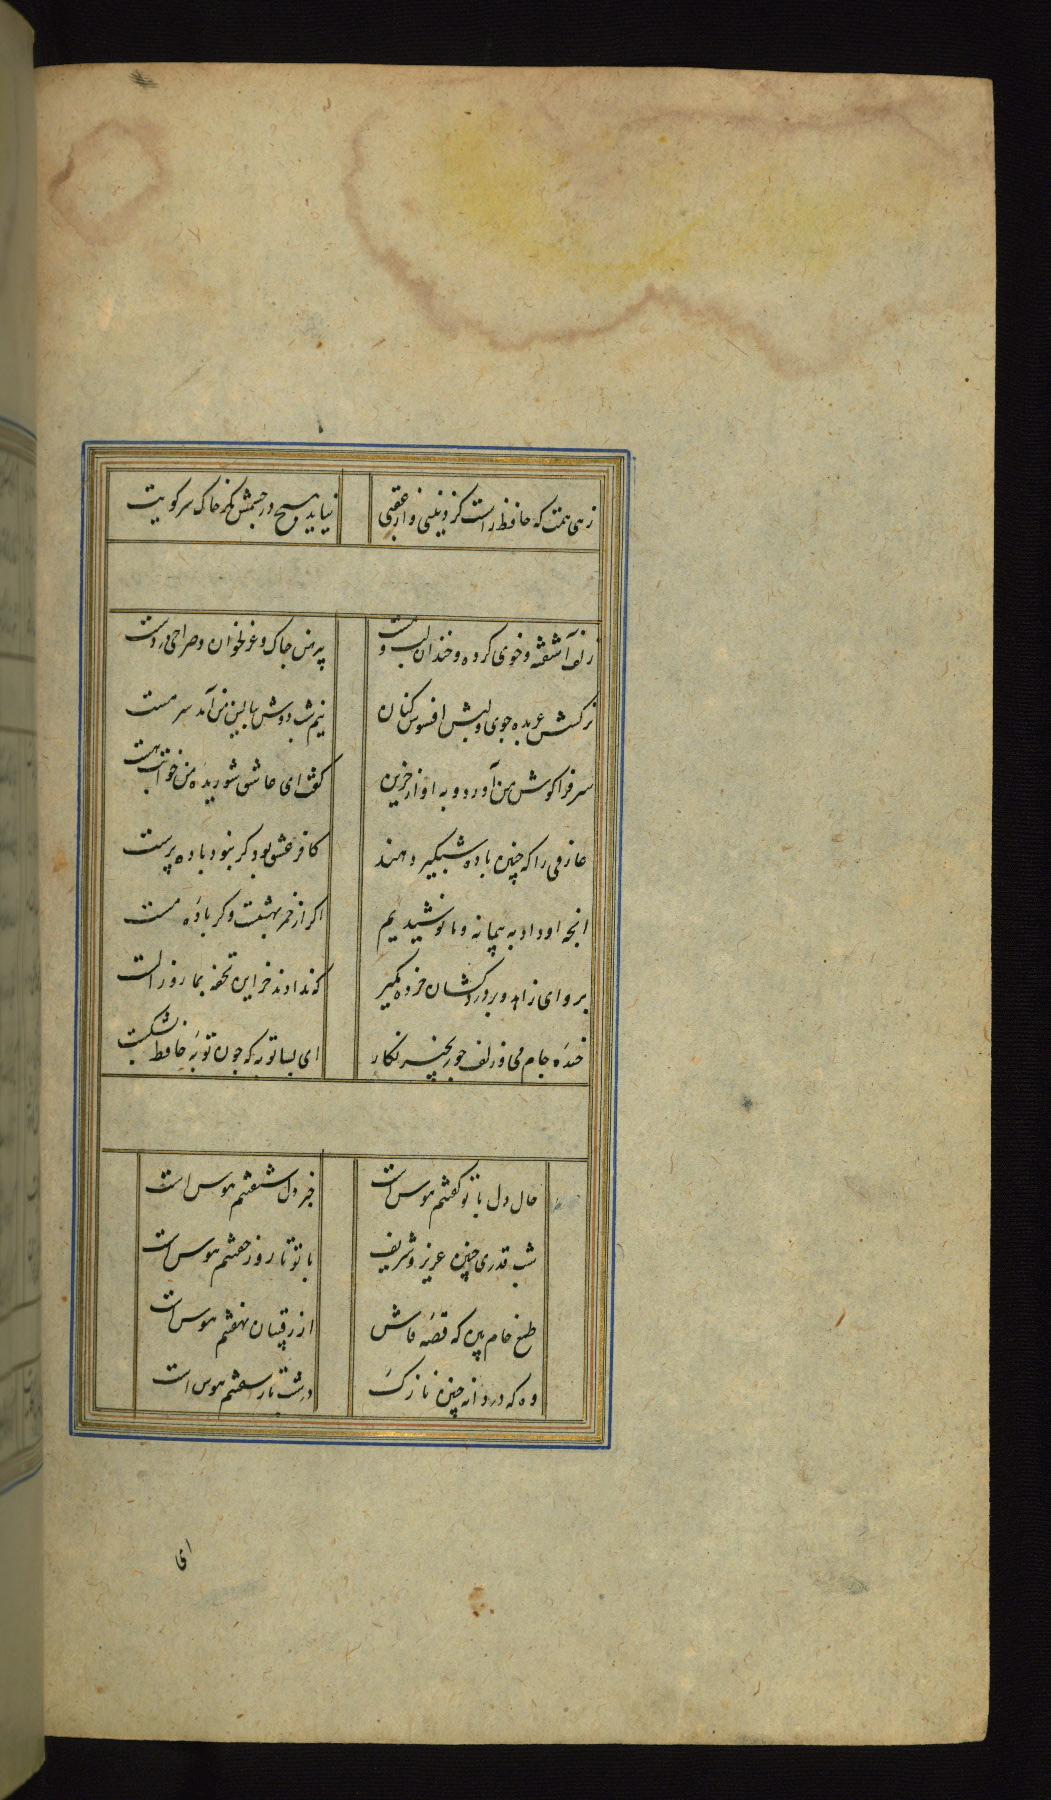 زهی همت که حافظ راست کز دنیی و از عقبی
نیاید هیچ در چشمش بجز خاک سر کویت
زلف آشفته و خوی کرده و خندان لب و مست
پیرهن چاک و غزلخوان و صراحی در دست
نرکسش عربده جوی و لبش افسوس کنان
نیم شب دوش ببالین من آمد سرمست
سر فراکوش من آورد و به آواز حزین
کفت ای عاشق شوریده من خوابت هست
عارفی را که چنین باده شبکیر دهند
کافر عشق بود کر نبود باده پرست
انچه او داد به پیمانه و ما نوشیدیم
اکر از خمر بهشت و کر باده مست
برو ای زاهد و بر دردکشان خرده مکیر
که ندادند جز این تحفه بما روز الست
خنده جام می و زلف چو زنجیر نکار
ای بسا توبه که چون توبه حافظ بشکست
حال دل با تو کفتنم هوس است
خبر دل شنفتنم هوس است
شب قدری چنین عزیز و شریف
با تو تا روز خفتنم هوس است
طمع خام بین که قصه فاش
از رقیبان نهفتنم هوس است
وه که دردانه چنین نازک
در شب تار سفتنم هوس است
ای